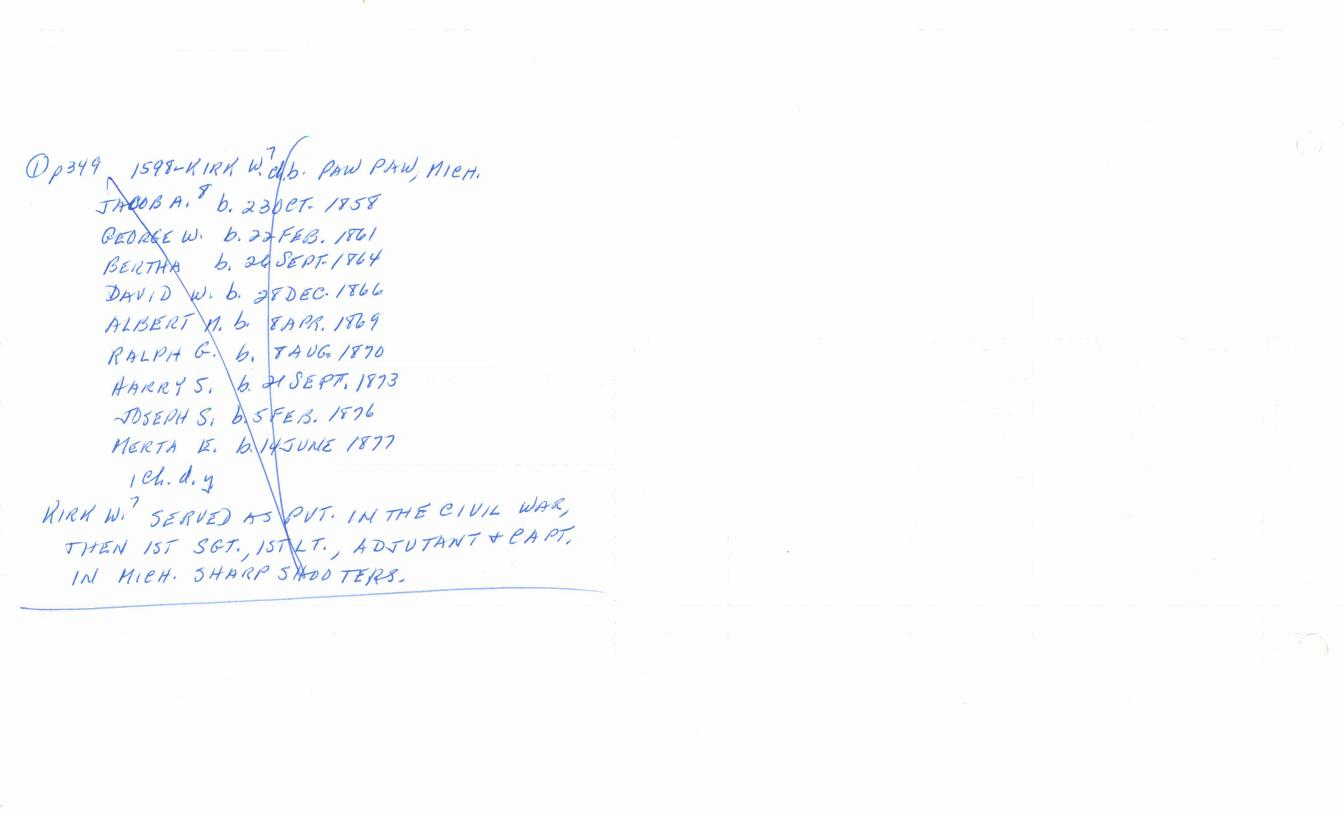 ① p349 1598-KIRK W.⁷ d.b. PAW PAW, MICH.
JACOB A.⁸ b. 23 OCT. 1858
GEORGE W. b. 22 FEB. 1861
BERTHA b. 26 SEPT. 1864
DAVID W. b. 28 DEC. 1866
ALBERT M. b. 8 APR. 1869
RALPH G. b. 8 AUG. 1870
HARRY S. b. 21 SEPT. 1873
JOSEPH S. b. 5 FEB. 1876
MERTA E. b. 14 JUNE 1877
1 ch. d. y
KIRK W.⁷ SERVED AS PVT. IN THE CIVIL WAR,
THEN 1ST SGT., 1ST LT., ADJUTANT & CAPT.
IN MICH. SHARP SHOOTERS.